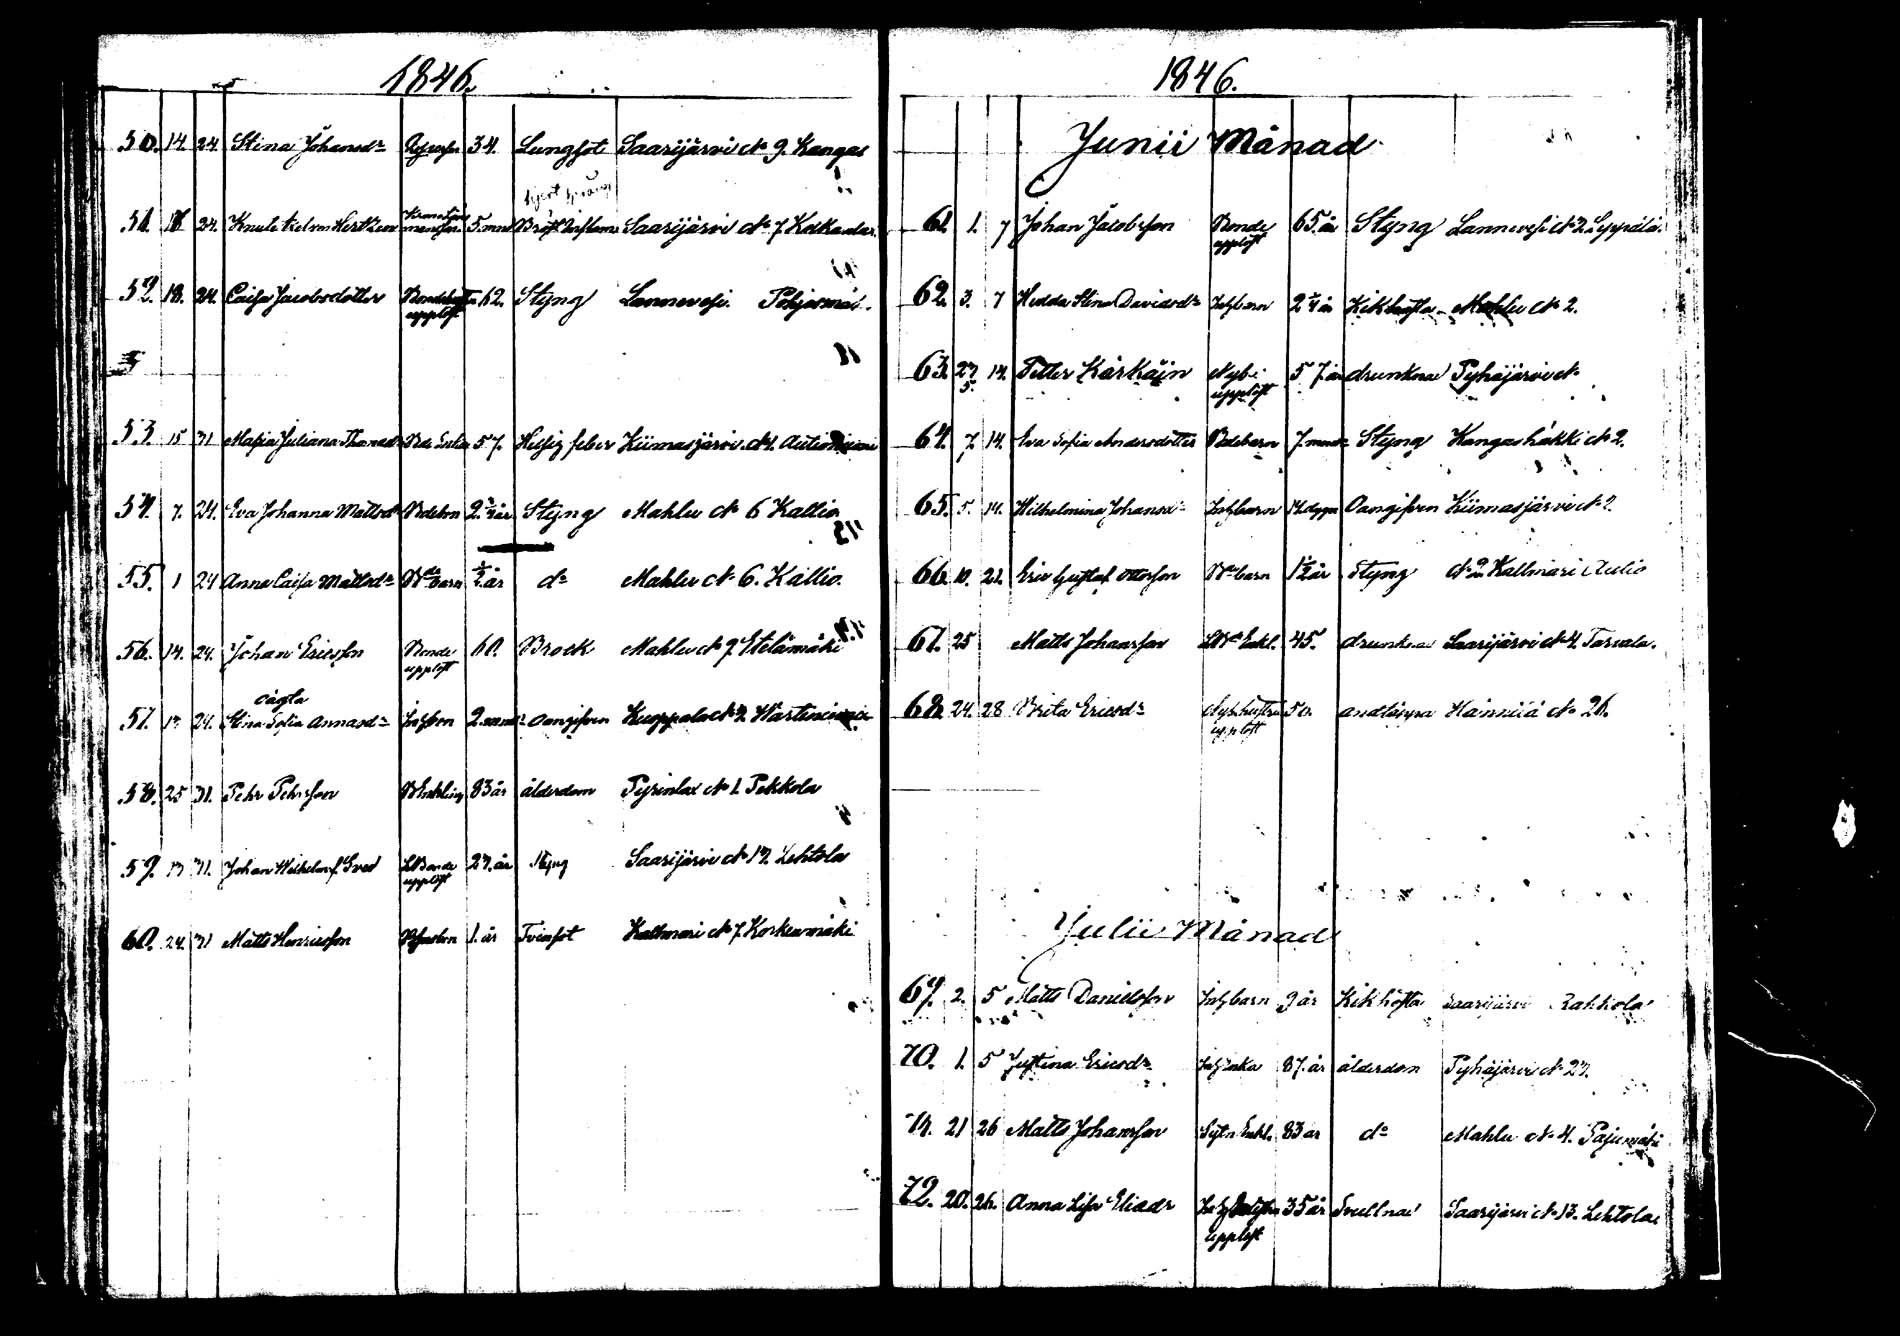 1846.
50. 14. 24. Stina Johansdr 34. Lungsot Saarijärvi No 9. Kangas
51. 24. 5. mnr Saarijärvi No 7.
52. 18. 24. Caisa Jacobsdotter upplöst 62. Styng Lannevesi.
53. 15 31 Maria Juliana 57. Hetsig feber Kiimasjärvi
54. 7. 24. Eva Johanna Mattsdr 2 1/4 år Styng Mahlu No 6 Kallio
55. 1 24 Anna Caisa Mattsdr Bde barn 1/2 år do Mahlu No 6. Kallio.
56. 14. 24. Johan Ericsson Bonde upplöst 60. Brock Mahlu No 7 Etelämäki
oägta
57. 24. Stina Sofia Annasdr 2. oangifven Kuoppala
58. 25 31. Pehr Pehrsson Enkling 83 år ålderdom Pyrinlax No 1. Pekkola
59. 31. Johan Wilhelm Bonde upplöst 27. år Styng Saarijärvi No 13. Lehtola
60. 24. 31 Matts Henricsson 1. år Tvinsot Kalmari No 7. Korkeamäki
1846.
Junii Månad
61. 1. 7 Johan Jacobsson Bonde upplöst 65. år Styng Lannevesi No 2. Leppälä.
62. 3. 7 Hedda Stina Davidsdr Inhbarn 2 1/4 år Kikhosta Mahlu No 2.
63. 27/5. 14. Petter Kärkäin Nyb: upplöst 57 år drunknad Pyhäjärvi No
64. 7. 14. Eva Sofia Andersdotter Bdebarn 7. Styng Kangashäkki No 2.
65. 5. 14. Wilhelmina Johansdr Inhbarn 14. dygn Oangifven Kiimasjärvi No 2.
66. 10. 21. Eric Gustaf Ottosson Bde barn 1 1/2 år Styng No 2 Kallmari Aulio
67. 25 Matts Johansson Enkl. 45. drunknad Saarijärvi No 4. Tarvala.
68. 24. 28 Brita Ericsdr upplöst 50. andtäppa Hännilä No 26.
Julii Månad
69. 2. 5 Matts Danielsson Inhbarn 9 år Kikhosta Saarijärvi Rahkola
70. 1. 5 Justina Ericsdr Inhenka 87. år ålderdom Pyhäjärvi No 27.
71. 21 26 Matts Johansson Sytn Enkl. 83 år do Mahlu No 4. Pajumäki
72. 20. 26. Anna Lisa Eliasdr Inh upplöst 35 år Svullnad Saarijärvi No 13. Lehtola